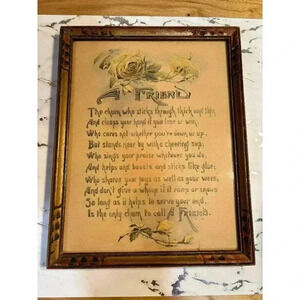 A FRIEND
The chum who sticks through thick and thin,
And clasps your hand if you lose or win,
Who cares not whether you're down or up,
But stands near by with a cheering sup;
Who sings your praise whatever you do,
And helps and boosts and sticks like glue;
Who shares your joys as well as your woes,
And don't give a whoop if it rains or snows
So long as it helps to serve your end,
Is the only chum to call A FRIEND.